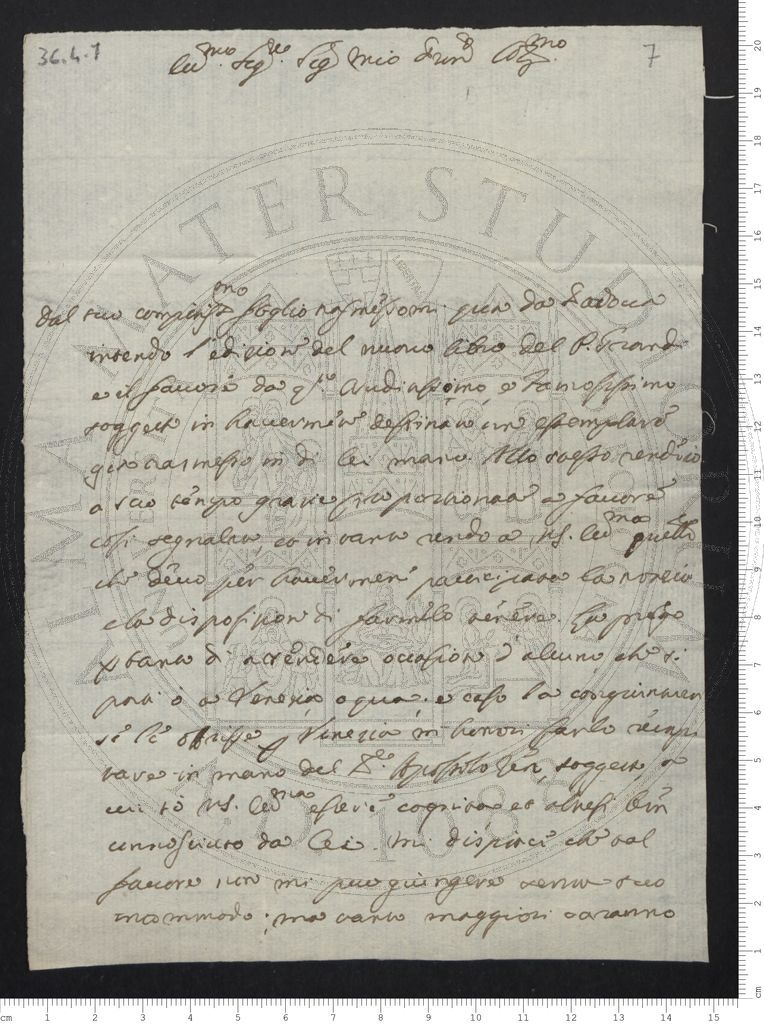 36.4.1
7
Ill.mo Sig.re Sig.r mio P.ron Col.mo
dal suo compitiss.mo foglio trasmessomi qua da Padova
intendo l'edizione del nuovo libro del P. Grandi
e il favore da q.to eruditissimo, e famosissimo
soggetto in havermene destinato un esemplare
già trasmesso in di lei mano. Allo stesso renderò
a suo tempo grazie proporzionate a favore
così segnalato, et in tanto rendo a VS. Ill.ma quelle
che devo per havermene participata la notizia
e la disposizion di farmelo tenere. La prego
per tanto di attendere occasione d'alcuno che si
porti ò a Venezia o qua. e caso la congiuntura
se le offrisse per Venezia mi honori farlo recapi
tare in mano del S.r Apostolo Zen, soggetto, a
cui sò VS. Ill.ma esser cognita et altresì ben
connosciuto da Lei. Mi dispiace che tal
favore non mi può giungere senza suo
incommodo; ma tanto maggiori saranno